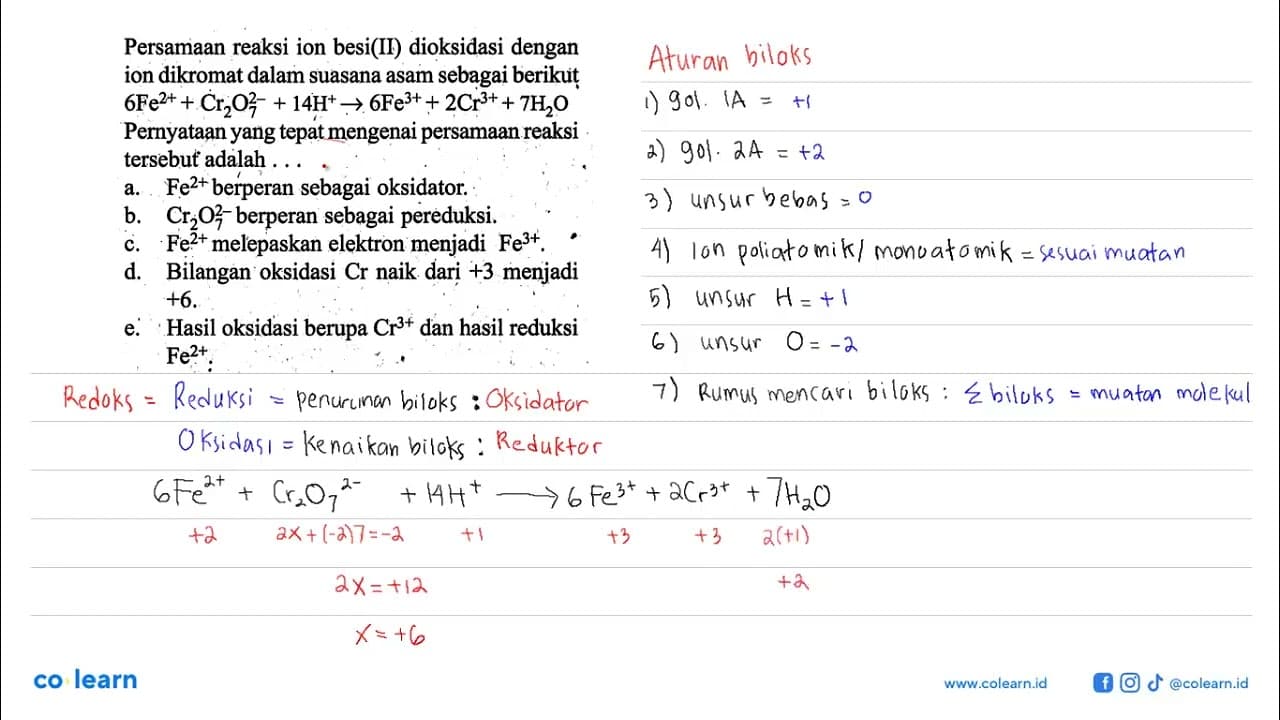 Persamaan reaksi ion besi(II) dioksidasi dengan
ion dikromat dalam suasana asam sebagai berikut
6Fe²⁺ + Cr₂O₇²⁻ + 14H⁺ → 6Fe³⁺ + 2Cr³⁺ + 7H₂O
Pernyataan yang tepat mengenai persamaan reaksi
tersebut adalah . . .
a. Fe²⁺ berperan sebagai oksidator.
b. Cr₂O₇²⁻ berperan sebagai pereduksi.
c. Fe²⁺ melepaskan elektron menjadi Fe³⁺.
d. Bilangan oksidasi Cr naik dari +3 menjadi
+6.
e. Hasil oksidasi berupa Cr³⁺ dan hasil reduksi
Fe²⁺.
Aturan biloks
1) gol. 1A = +1
2) gol. 2A = +2
3) unsur bebas = 0
4) Ion poliatomik/ monoatomik = sesuai muatan
5) unsur H = +1
6) unsur O = -2
7) Rumus mencari biloks : Σ biloks = muatan molekul
Redoks = Reduksi = penurunan biloks : Oksidator
Oksidasi = kenaikan biloks : Reduktor
6Fe²⁺ + Cr₂O₇²⁻ + 14H⁺ → 6Fe³⁺ + 2Cr³⁺ + 7H₂O
+2 2x+(-2)7=-2 +1 +3 +3 2(+1)
2x=+12 +2
x=+6
co learn
www.colearn.id @colearn.id